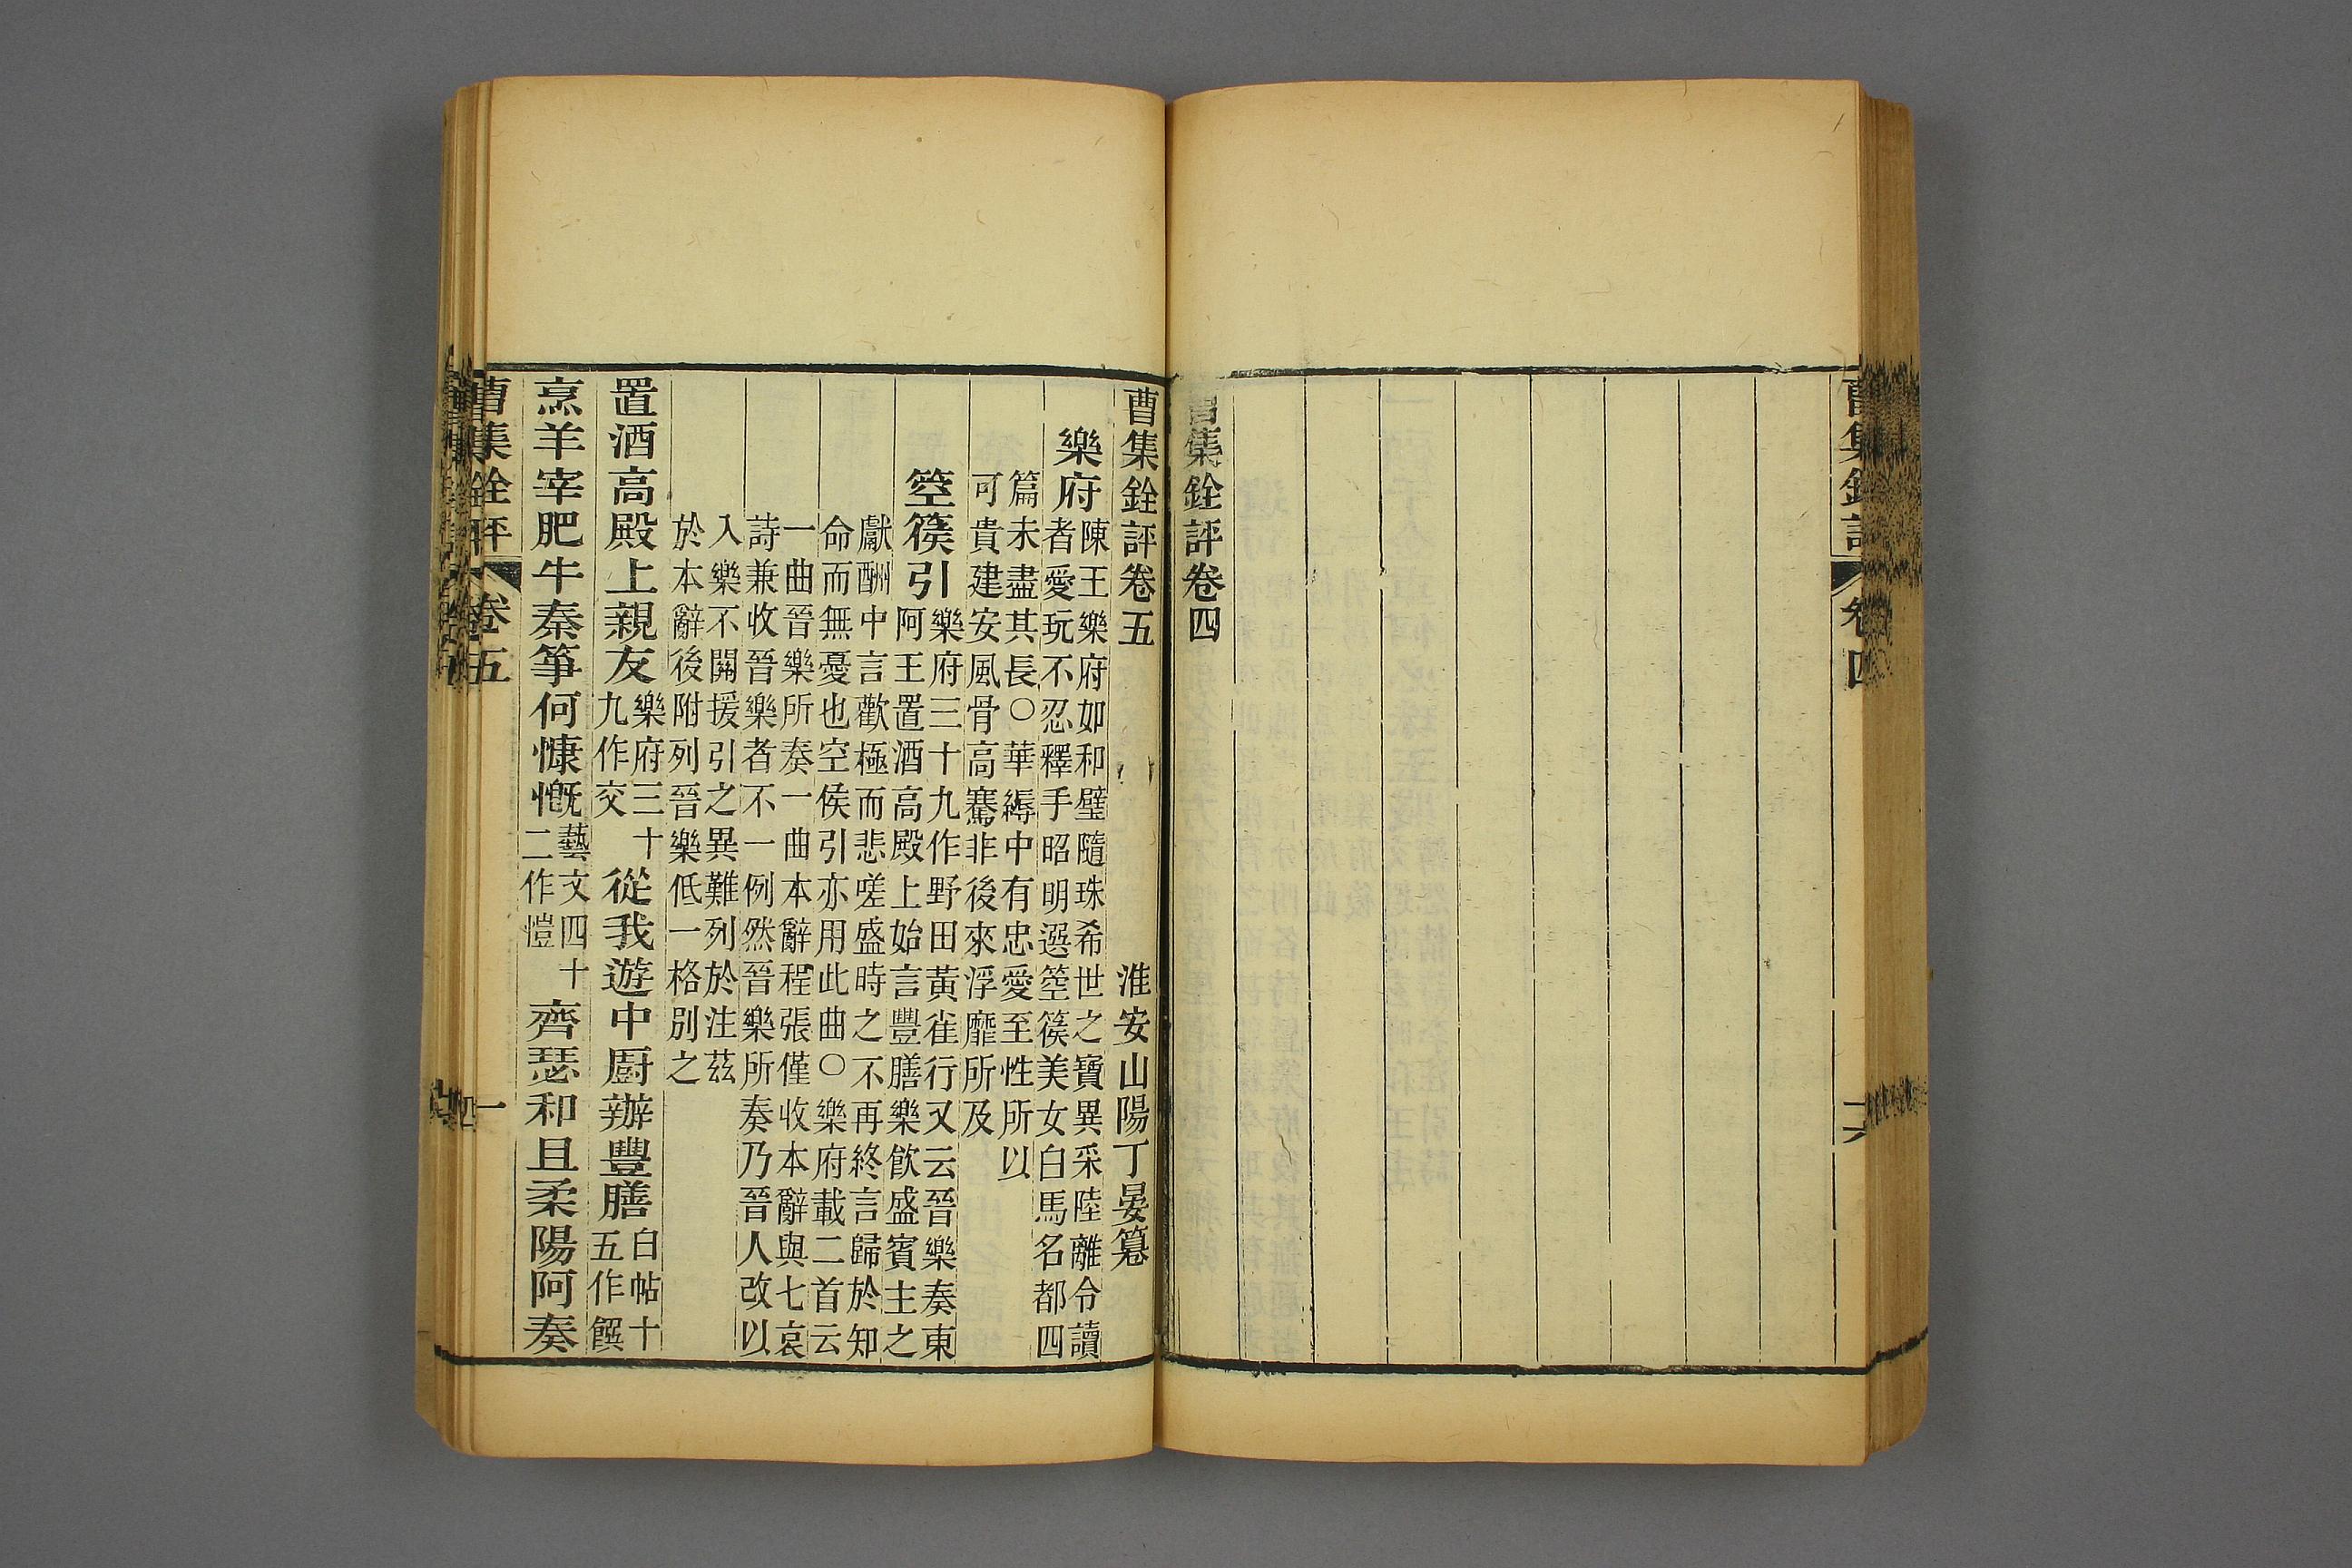 曹集銓評卷四
曹集銓評卷五
淮安山陽丁晏纂
樂府
陳王樂府如和璧隨珠希世之寶異采陸離令讀
者愛玩不忍釋手昭明選箜篌美女白馬名都四
篇未盡其長○華縟中有忠愛至性所以
可貴建安風骨高騫非後來浮靡所及
箜篌引
樂府三十九作野田黃雀行又云晉樂奏東
阿王置酒高殿上始言豐膳樂飲盛賓主之
獻酬中言歡極而悲嗟盛時之不再終言歸於知
命而無憂也空侯引亦用此曲○樂府載二首云
一曲晉樂所奏一曲本辭程張僅收本辭與七哀
詩兼收晉樂者不一例然晉樂所奏乃晉人改以
入樂不關援引之異難列於注茲
於本辭後附列晉樂低一格別之
置酒高殿上親友樂府三十九作交從我遊中廚辦豐膳白帖十五作饌
烹羊宰肥牛秦箏何慷慨藝文四十二作愷齊瑟和且柔陽阿奏
曹集銓評
卷五
一